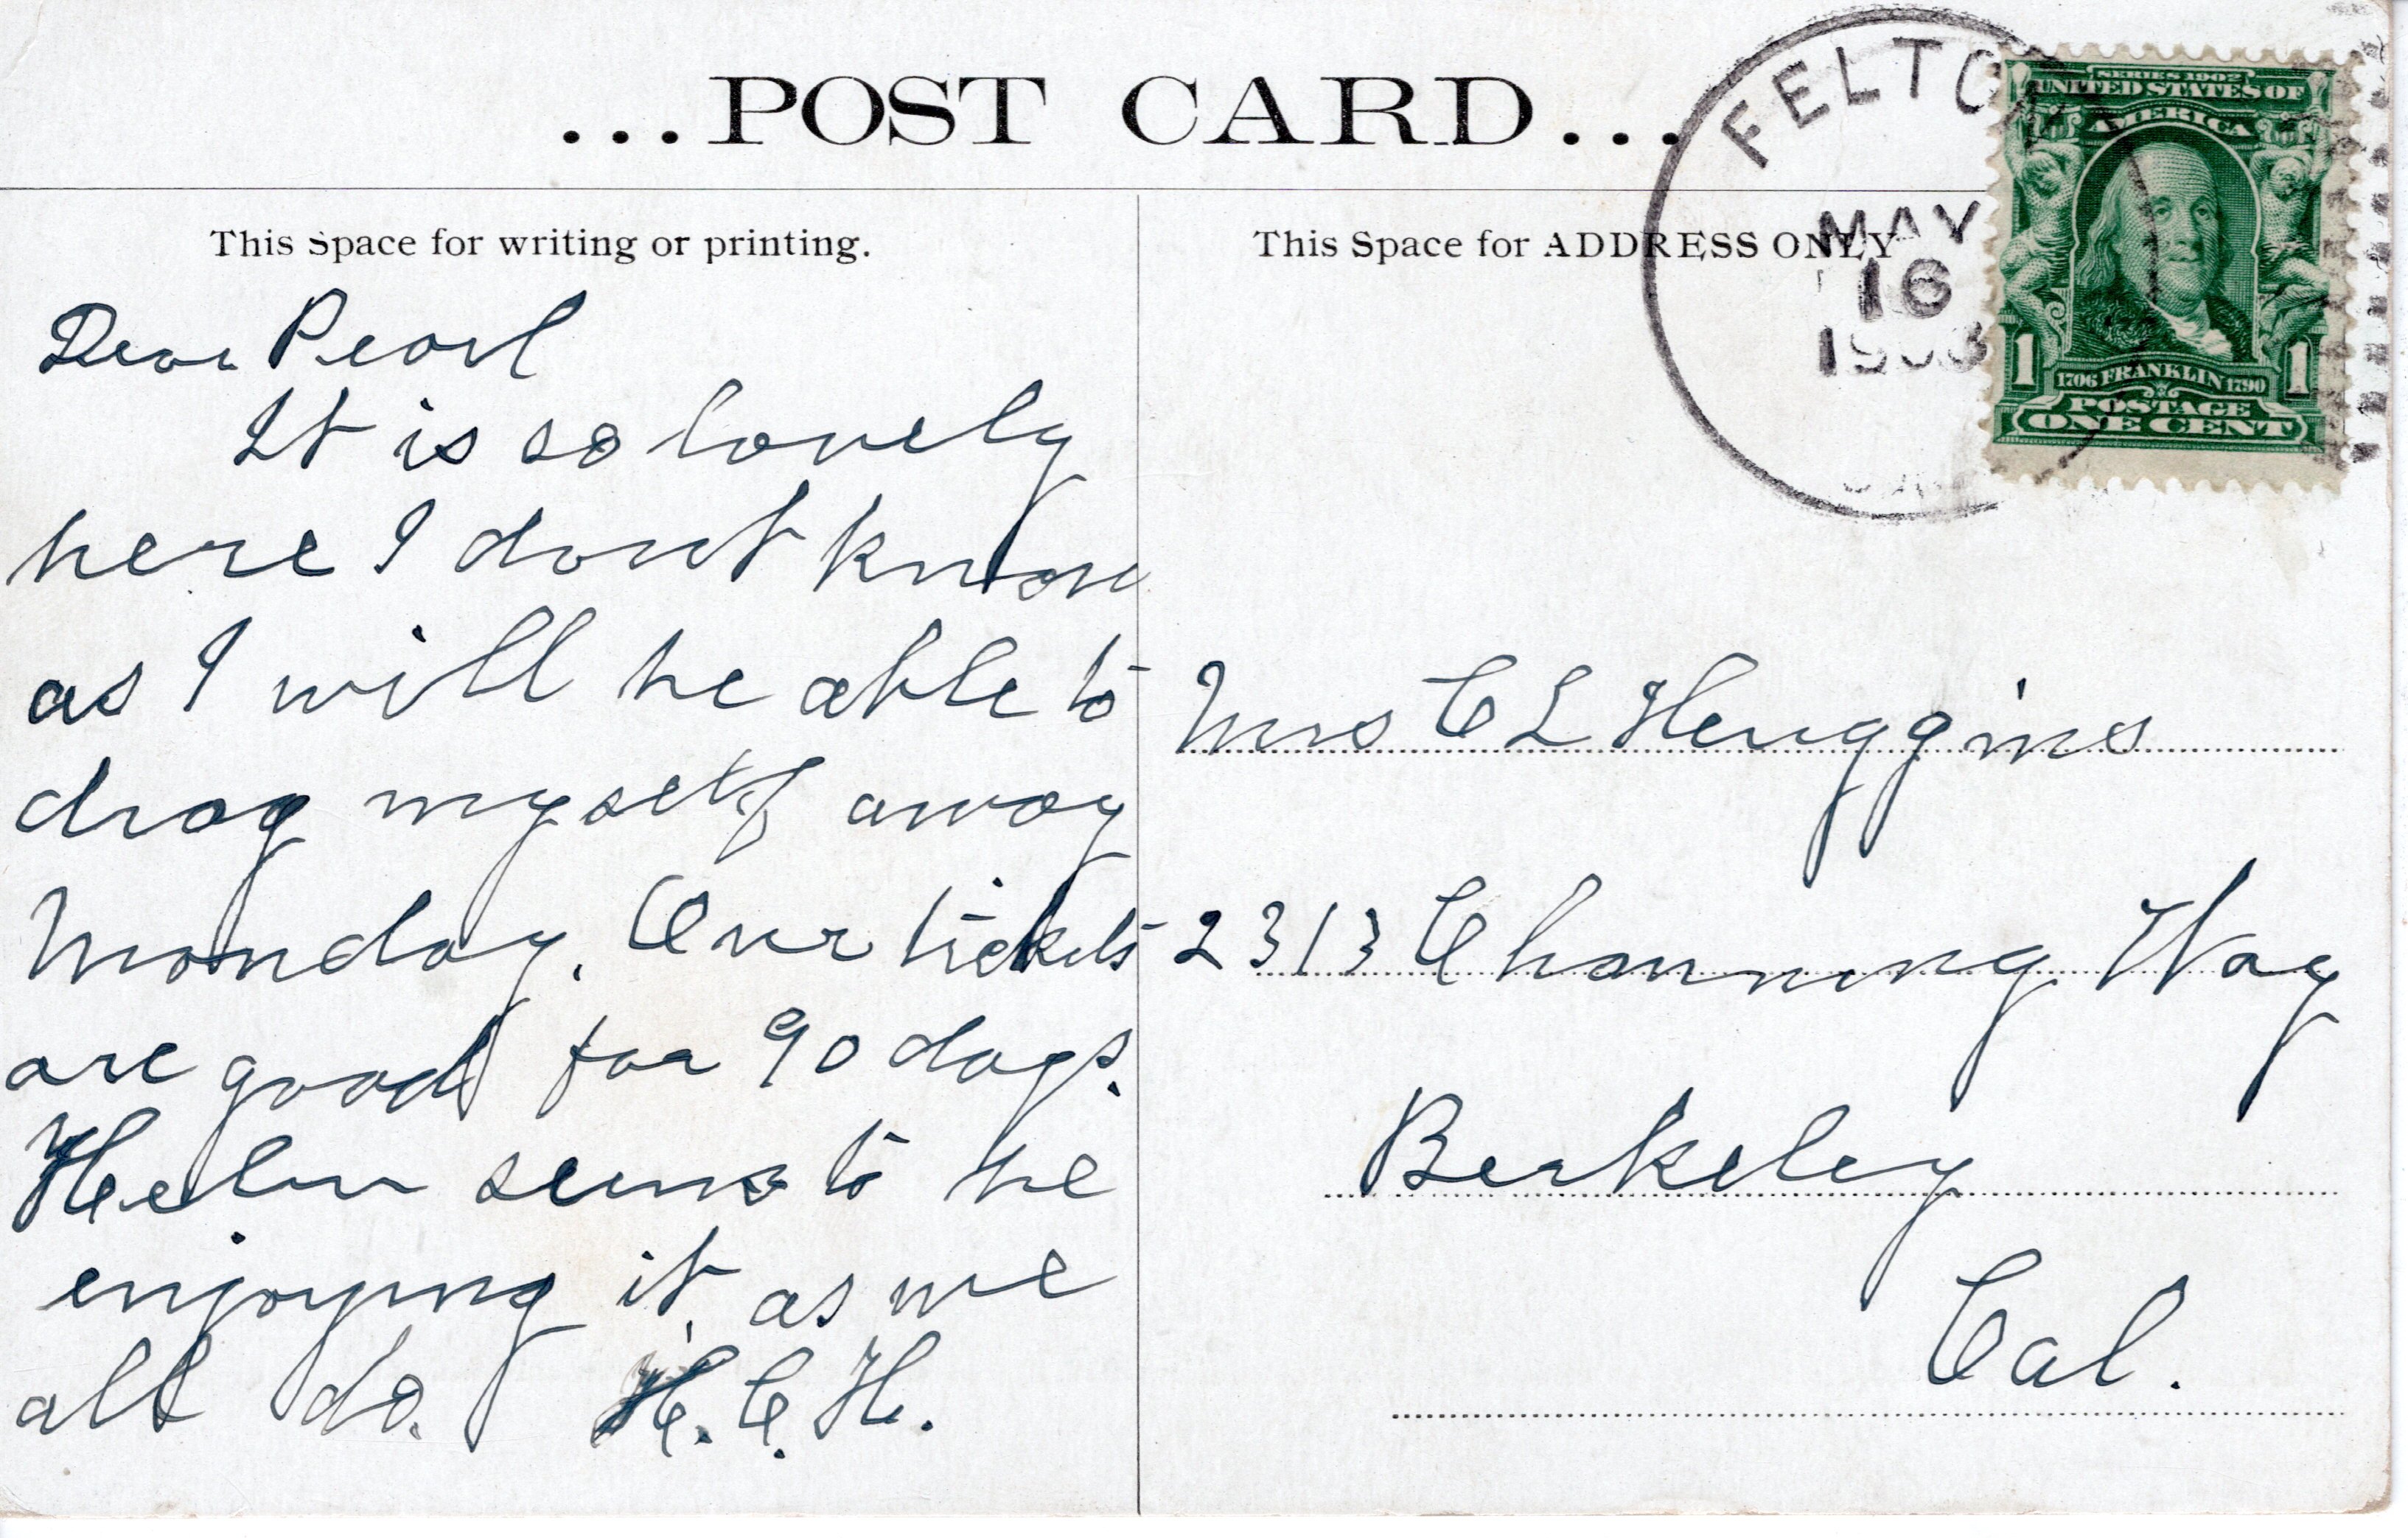 ...POST CARD...
This Space for writing or printing.
Dear Pearl
It is so lovely
here I dont know
as I will be able to
drag myself away
Monday. Our tickets
are good for 90 days.
Helen seems to be
enjoying it as we
all do. H.C.H.
This Space for ADDRESS ONLY
Mrs C L Huggins
2313 Channing Way
Berkeley
Cal.
FELTON
MAY
16
1908
SERIES 1902
UNITED STATES OF
AMERICA
1 1
1706 FRANKLIN 1790
POSTAGE
ONE CENT